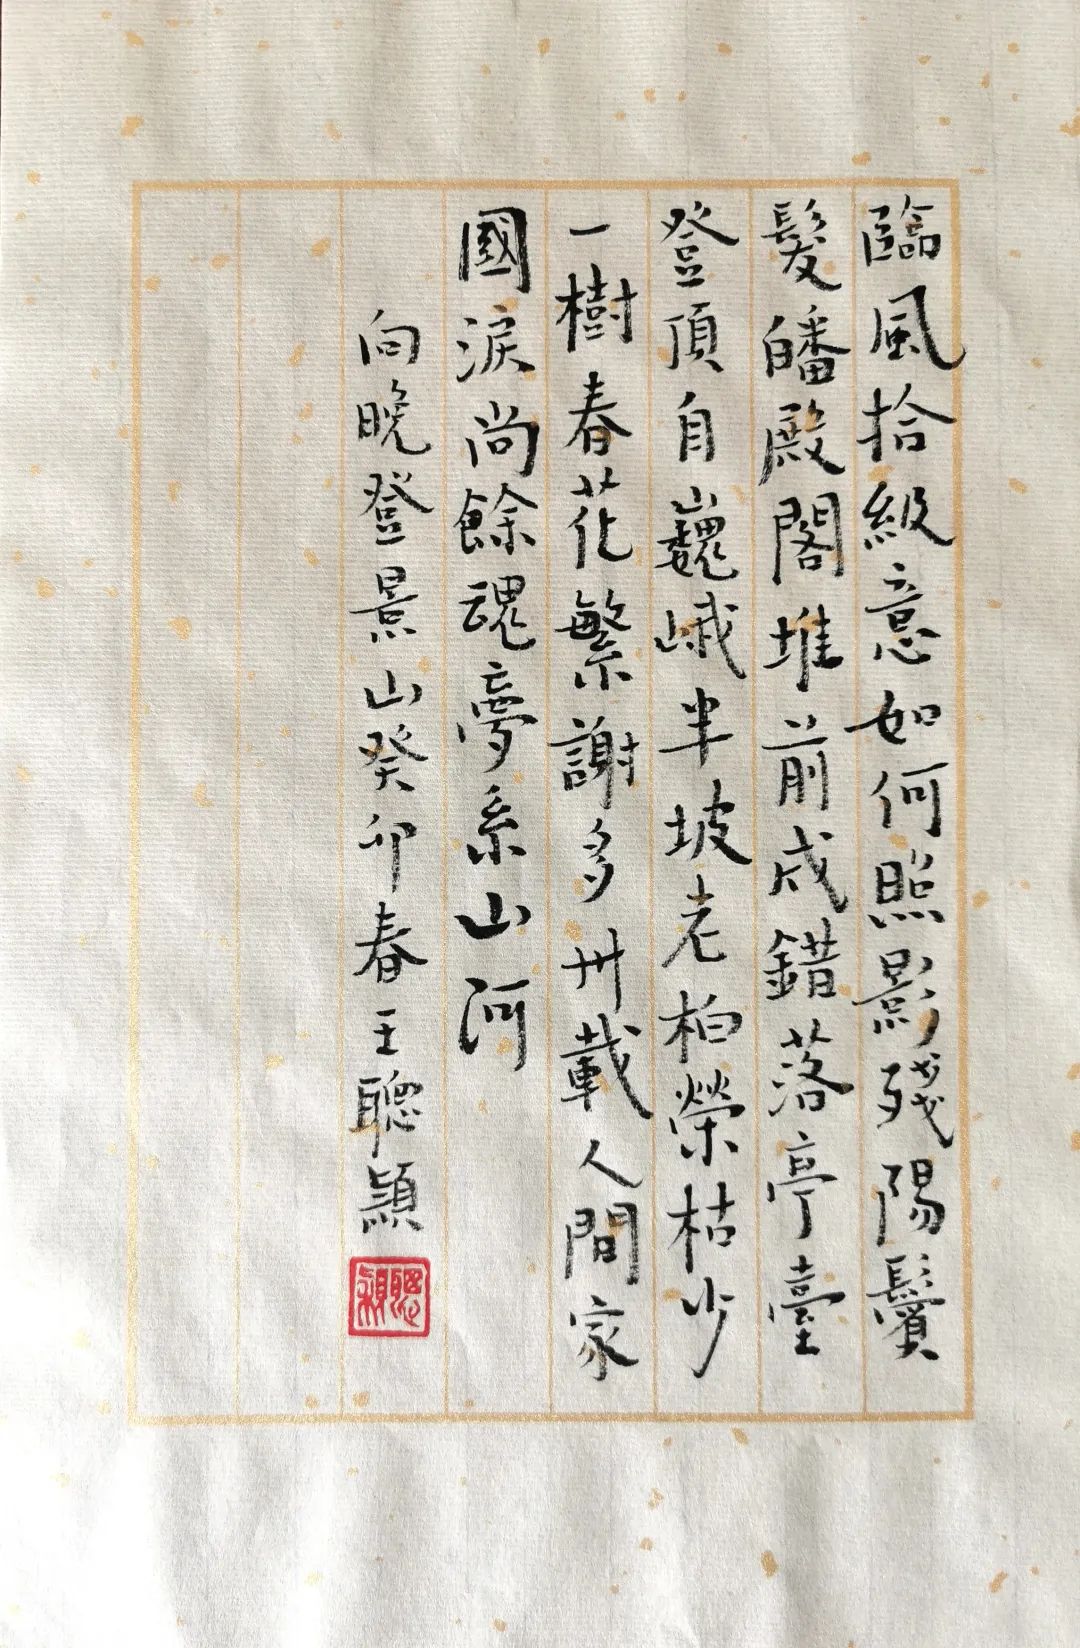 臨風拾級意如何照影殘陽鬢
髮皤殿閣堆前成錯落亭臺
登頂自巍峨半坡老柏榮枯少
一樹春花繁謝多卅載人間家
國淚尚餘魂夢系山河
向晚登景山癸卯春王聰穎
聰穎